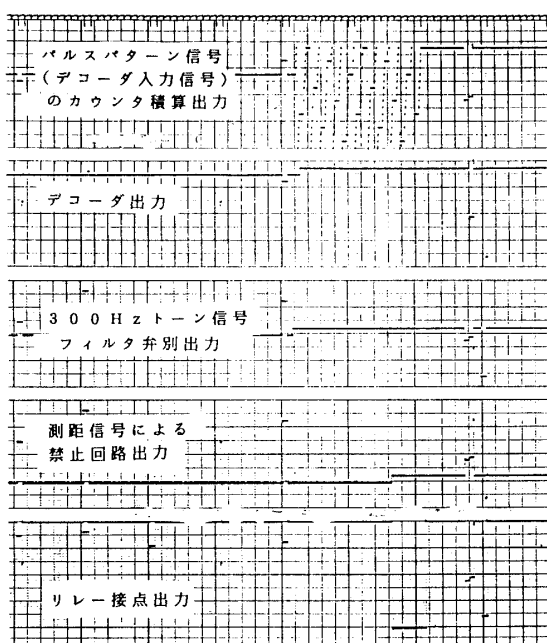 パルスパターン信号
(デコーダ入力信号)
のカウンタ積算出力
デコーダ出力
300Hzトーン信号
フィルタ弁別出力
測距信号による
禁止回路出力
リレー接点出力